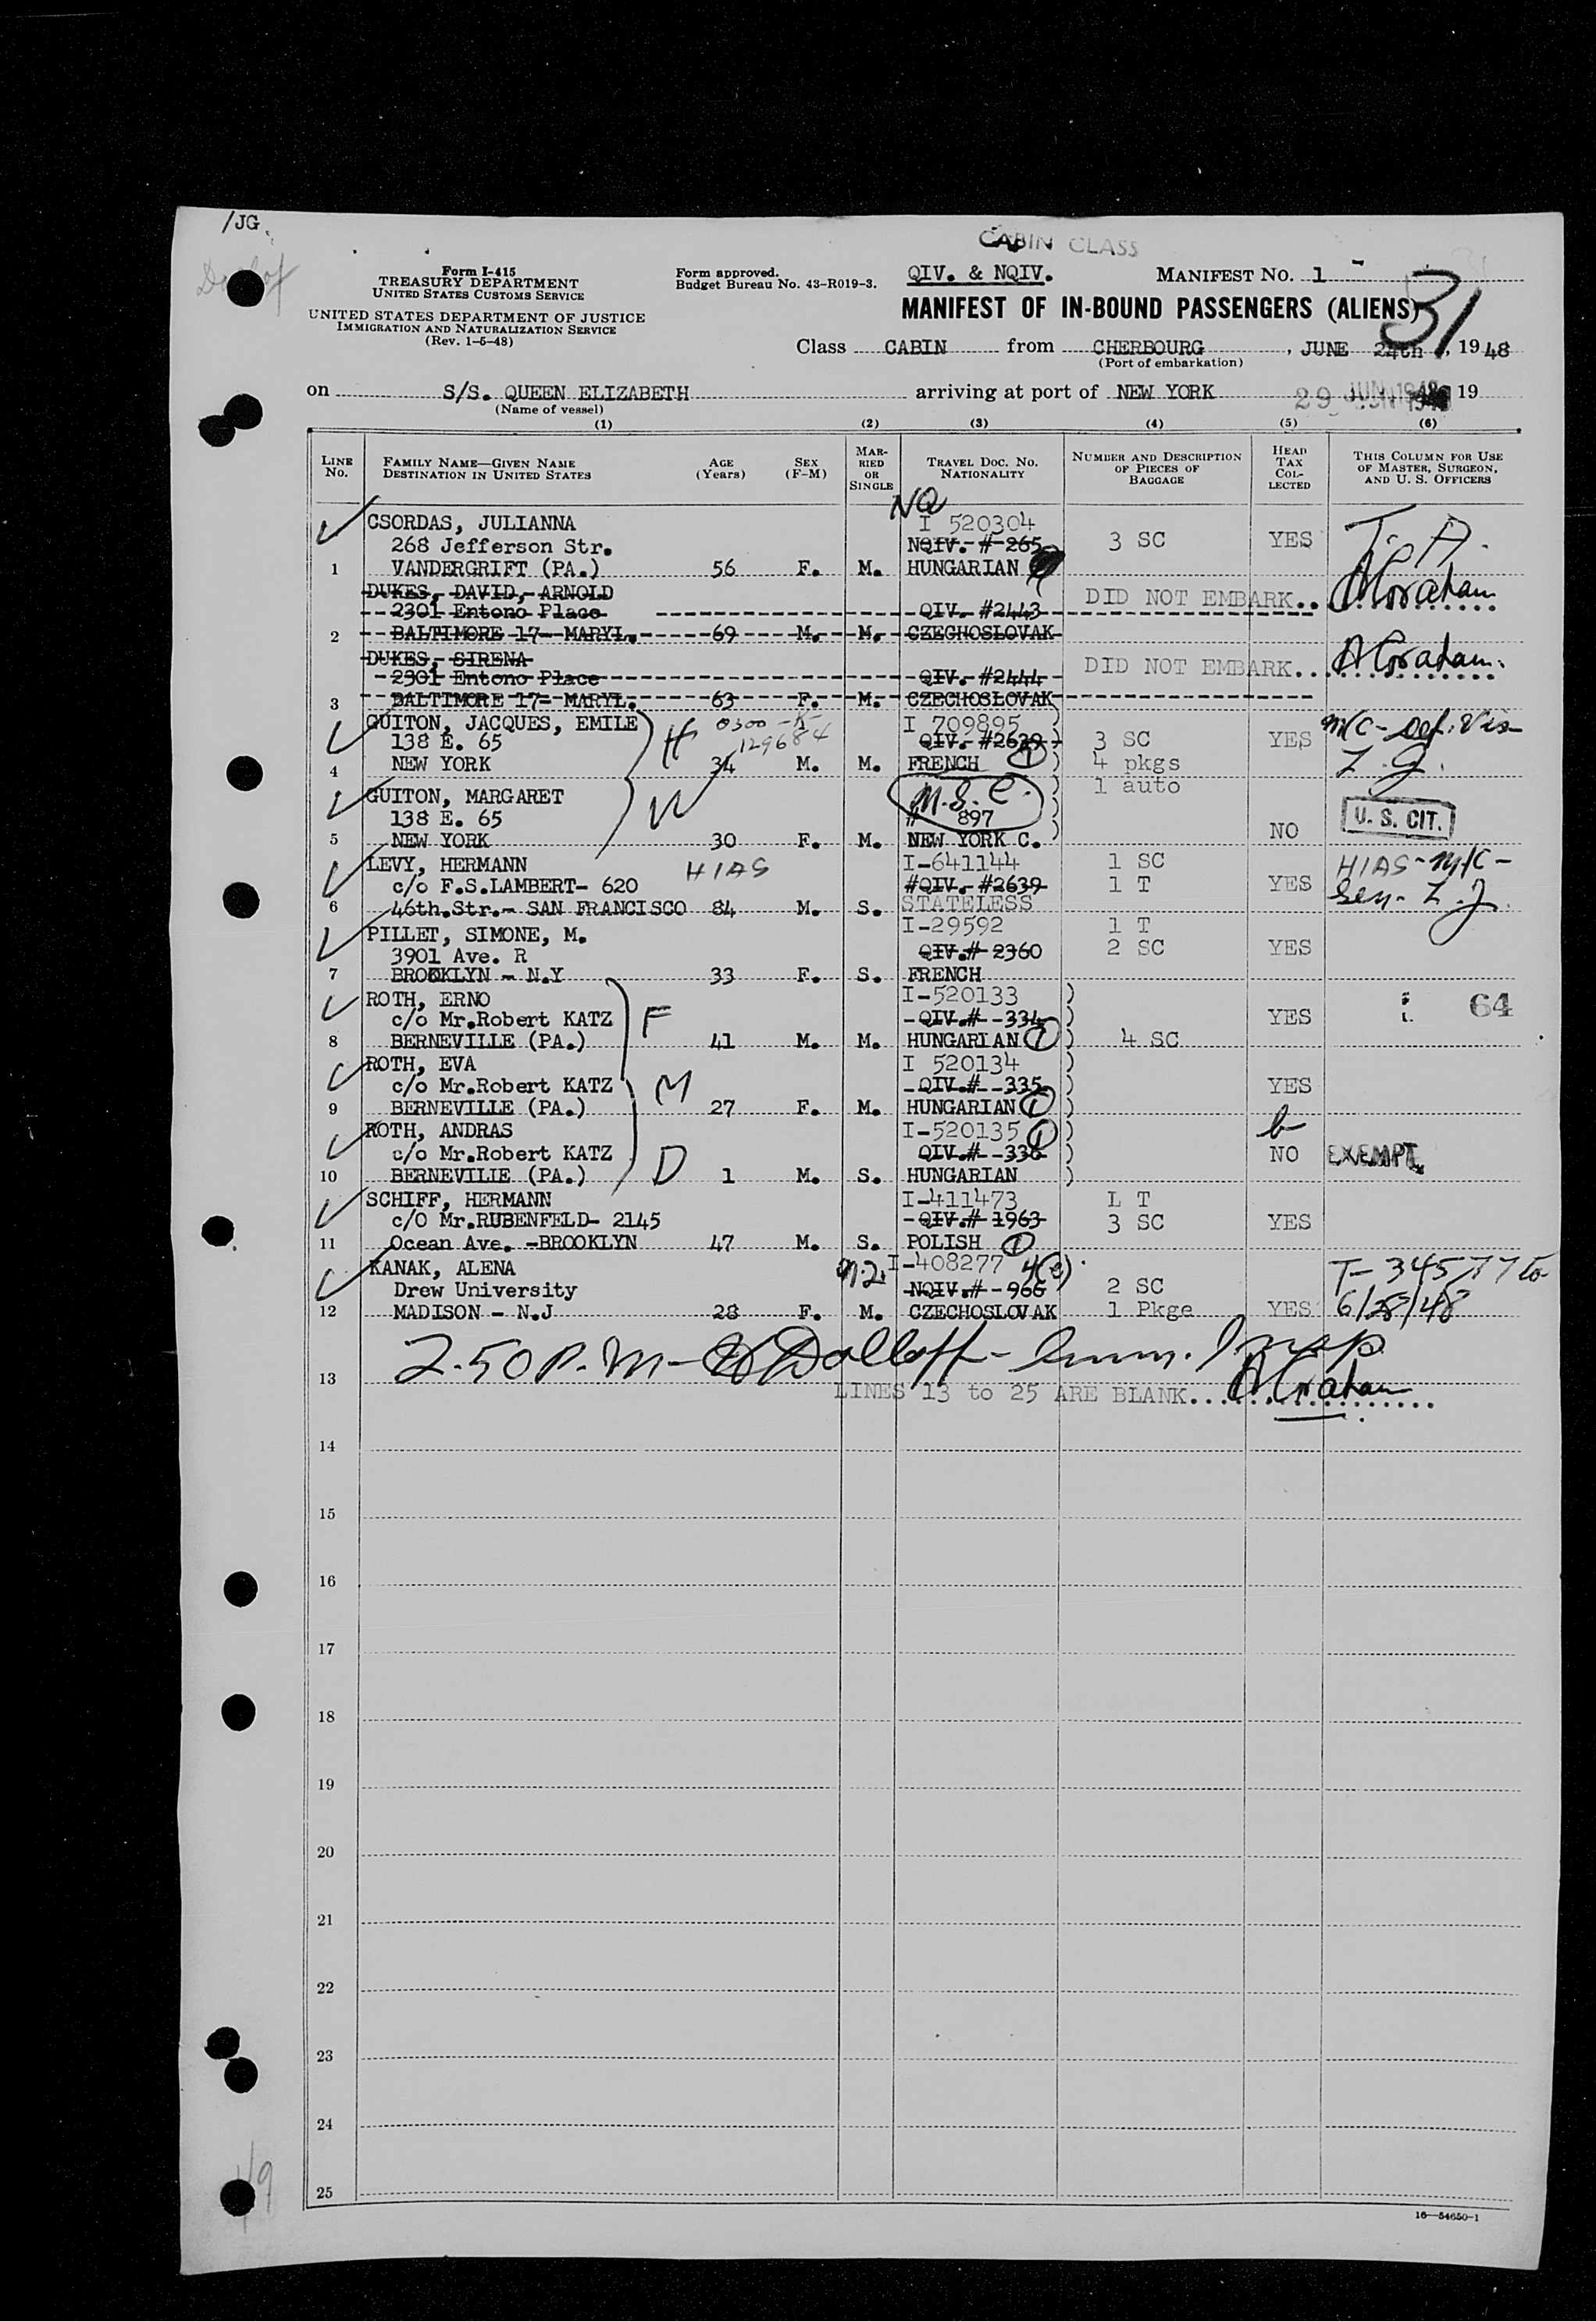 /JG.
CABIN CLASS
Form I-415
TREASURY DEPARTMENT
UNITED STATES CUSTOMS SERVICE
UNITED STATES DEPARTMENT OF JUSTICE
IMMIGRATION AND NATURALIZATION SERVICE
(Rev. 1-5-48)
Form approved.
Budget Bureau No. 43-R019-3.
QIV. & NQIV.
MANIFEST NO. 1
31
MANIFEST OF IN-BOUND PASSENGERS (ALIENS)
Class CABIN from CHERBOURG, JUNE 24th, 1948
(Port of embarkation)
on S/S. QUEEN ELIZABETH arriving at port of NEW YORK 29 JUN 1948 19
(Name of vessel)
(1) (2) (3) (4) (5) (6)
LINE NO.
FAMILY NAME—GIVEN NAME
DESTINATION IN UNITED STATES
AGE (Years)
SEX (F-M)
MARRIED OR SINGLE
TRAVEL DOC. NO.
NATIONALITY
NUMBER AND DESCRIPTION OF PIECES OF BAGGAGE
HEAD TAX COLLECTED
THIS COLUMN FOR USE OF MASTER, SURGEON, AND U. S. OFFICERS
NQ
CSORDAS, JULIANNA I 520304
268 Jefferson Str. NQIV.- #-265 3 SC YES
1 VANDERGRIFT (PA.) 56 F. M. HUNGARIAN
DUKES, DAVID, ARNOLD DID NOT EMBARK..
2301 Entono Place QIV. #2443
2 BALTIMORE 17- MARYL. 69 M. M. CZECHOSLOVAK
DUKES, SIRENA DID NOT EMBARK...
2301 Entono Place QIV. #2444
3 BALTIMORE 17- MARYL. 63 F. M. CZECHOSLOVAK
GUITON, JACQUES, EMILE H 0300-K- I 709895 M/C- Def. Vis-
138 E. 65 129684 QIV.- #2639 3 SC YES
4 NEW YORK 34 M. M. FRENCH 4 pkgs
1 auto
GUITON, MARGARET W M.S.C.
138 E. 65 # 897 U. S. CIT.
5 NEW YORK 30 F. M. NEW YORK C. NO
LEVY, HERMANN HIAS I-641144 1 SC HIAS-M/C-
c/o F.S.LAMBERT- 620 #QIV.- #2639 1 T YES Sen-
6 46th.Str.- SAN FRANCISCO 84 M. S. STATELESS
PILLET, SIMONE, M. I-29592 1 T
3901 Ave. R QIV.# 2360 2 SC YES
7 BROOKLYN - N.Y 33 F. S. FRENCH
ROTH, ERNO I-520133 64
c/o Mr.Robert KATZ F QIV.# -334 YES
8 BERNEVILLE (PA.) 41 M. M. HUNGARIAN 4 SC
ROTH, EVA I 520134
c/o Mr.Robert KATZ M QIV.# -335 YES
9 BERNEVILLE (PA.) 27 F. M. HUNGARIAN
ROTH, ANDRAS I-520135
c/o Mr.Robert KATZ QIV.# -336 NO EXEMPT
10 BERNEVILIE (PA.) D 1 M. S. HUNGARIAN
SCHIFF, HERMANN I-411473 L T
c/O Mr.RUBENFELD- 2145 QIV.# 1963 3 SC YES
11 Ocean Ave. -BROOKLYN 47 M. S. POLISH
KANAK, ALENA I-408277 4(e) T-34577 to
Drew University NQIV.# -966 2 SC
12 MADISON - N.J 28 F. M. CZECHOSLOVAK 1 Pkge YES 6/28/48
2.50 P.M- Dolloff- Imm. Insp
13 LINES 13 to 25 ARE BLANK...
14
15
16
17
18
19
20
21
22
23
24
25
16—54650-1